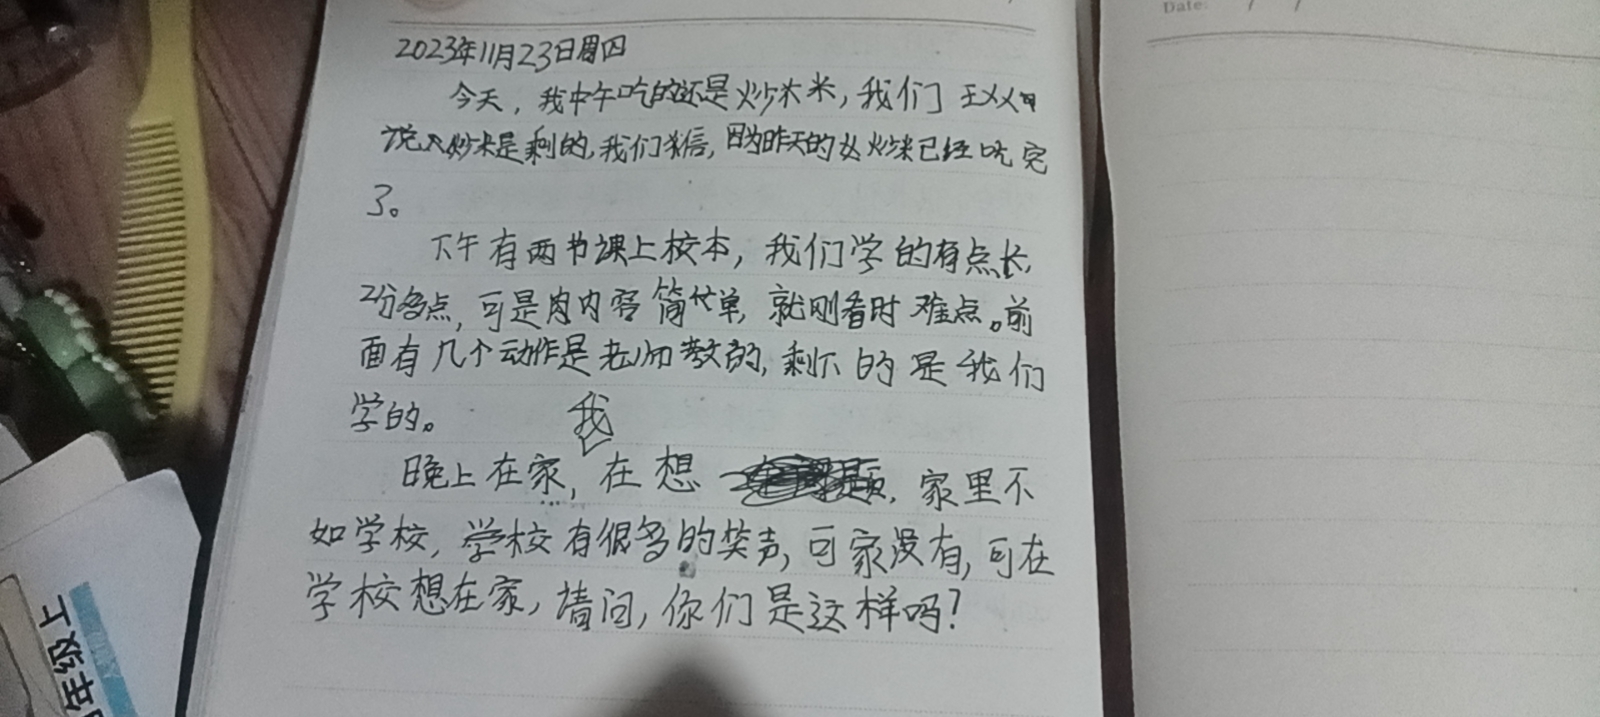 Date: / /
2023年11月23日周四
今天，我中午吃的还是炒米，我们王乂乂
说炒米是剩的，我们信，因为昨天的炒米已经吃完
了。
下午有两节课上校本，我们学的有点长，
2分多点，可是内容简单，就刚看时难点。前
面有几个动作是老师教的，剩下的是我们
学的。
晚上在家，我在想，家里不
如学校，学校有很多的笑声，可家没有，可在
学校想在家，请问，你们是这样吗？
年级上